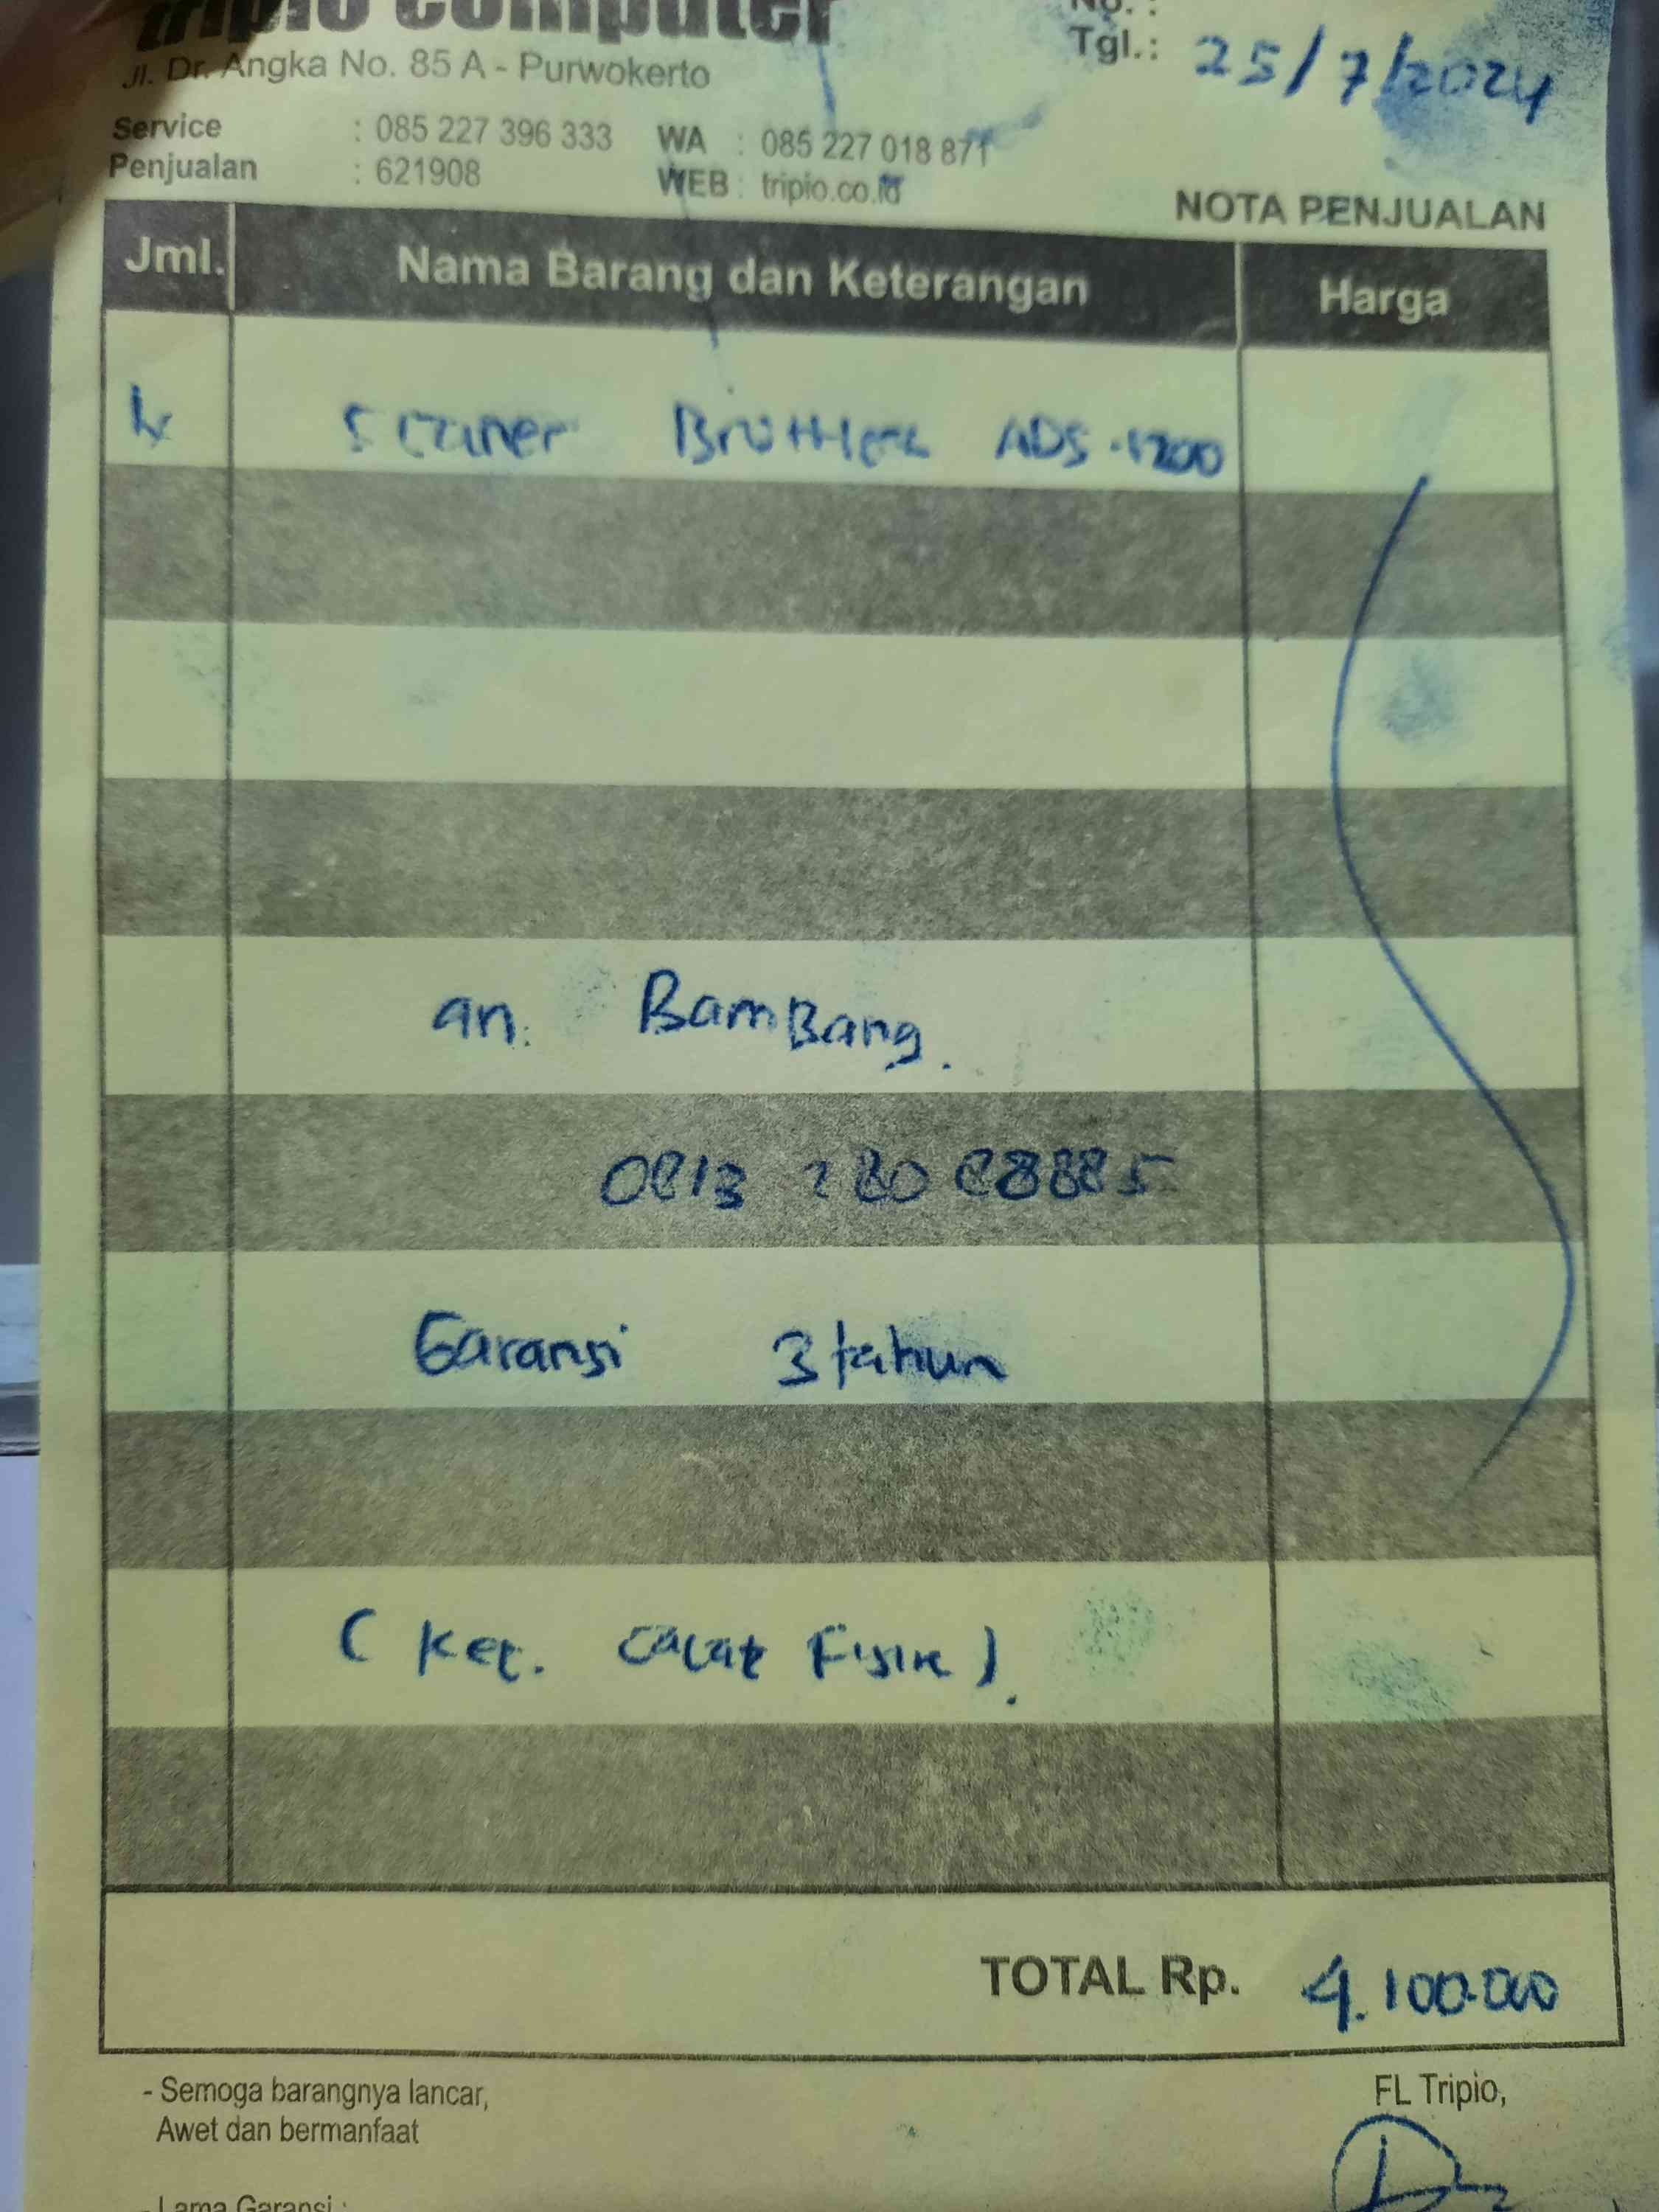 tripio computer
No. :
Jl. Dr. Angka No. 85 A - Purwokerto
Tgl.: 25/7/2024
Service : 085 227 396 333 WA : 085 227 018 871
Penjualan : 621908 WEB : tripio.co.id
NOTA PENJUALAN
Jml. Nama Barang dan Keterangan Harga
Scaner Brotther ADS-1200
an. BamBang.
0813 280 88885
Garansi 3 tahun
( Kec. cacat Fisik ).
TOTAL Rp. 4.100.000
- Semoga barangnya lancar,
Awet dan bermanfaat
FL Tripio,
- Lama Garansi :